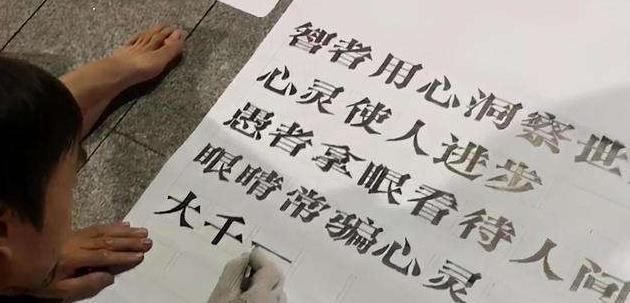 智者用心洞察世
心灵使人进步
愚者拿眼看待人间
眼睛常骗心灵
大千